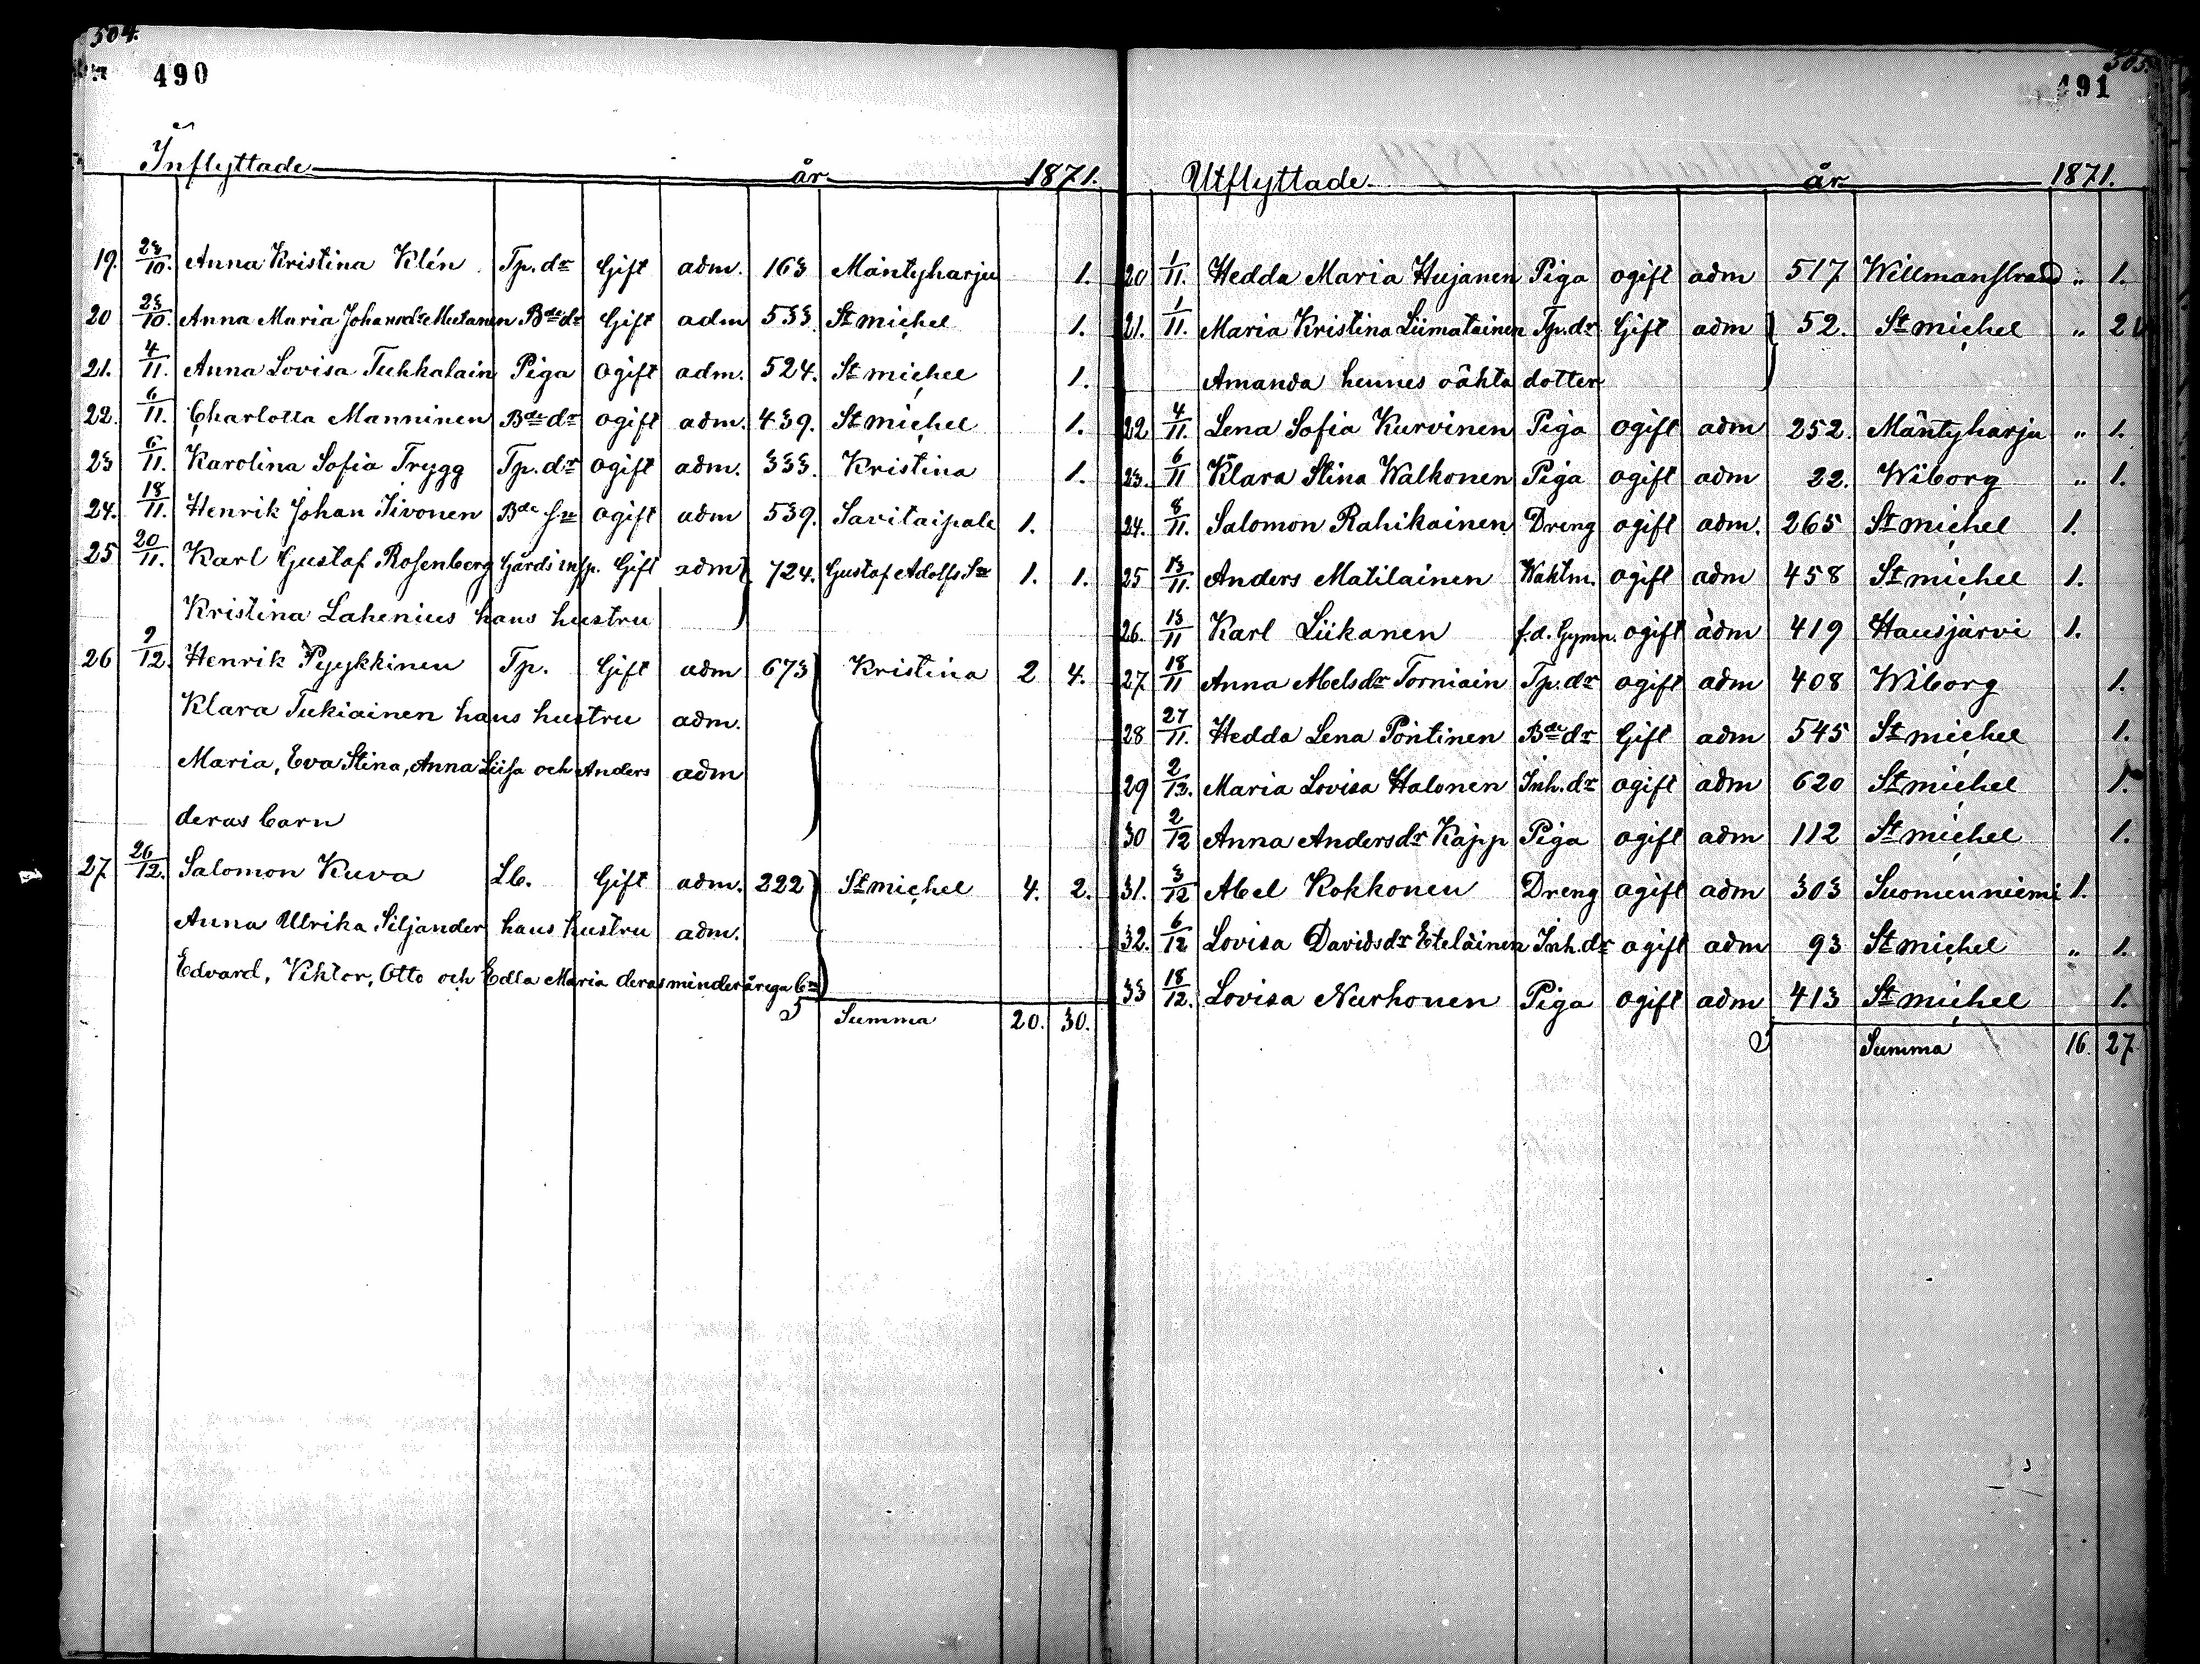 504.
490
Inflyttade år 1871.
19. 23/10. Anna Kristina Klén Tp. dr Gift adm. 163 Mäntyharju 1.
20 23/10. Anna Maria Johansdr Mutanen Bde dr Gift adm 533. St michel 1.
21. 4/11. Anna Lovisa Tuhkalain Piga ogift adm. 524. St michel 1.
22. 6/11. Charlotta Manninen Bde dr ogift adm. 439. St michel 1.
23 6/11. Karolina Sofia Trygg Tp. dr ogift adm. 333. Kristina 1.
24. 18/11. Henrik Johan Sivonen Bde sn ogift adm 539. Savitaipale 1.
25 20/11. Karl Gustaf Rosenberg Gårds insp. Gift adm 724. Gustaf Adolfs Sn 1. 1.
Kristina Lahenius hans hustru
26 9/12. Henrik Pyykkinen Tp. Gift adm 673 Kristina 2 4.
Klara Tukiainen hans hustru adm.
Maria, Eva Stina, Anna Liisa och Anders adm
deras barn
27. 26/12. Salomon Kuva Lb. Gift adm. 222 St michel 4. 2.
Anna Ulrika Siljander hans hustru adm.
Edvard, Viktor, Otto och Edla Maria deras minderåriga bn
Summa 20. 30.
505.
491
Utflyttade år 1871.
20 1/11. Hedda Maria Hujanen Piga ogift adm 517 Willmanstrand " 1.
21. 1/11. Maria Kristina Liimatainen Tp. dr Gift adm 52. St michel " 2
Amanda hennes oäkta dotter
22 4/11. Lena Sofia Kurvinen Piga ogift adm 252. Mäntyharju " 1.
23. 6/11 Klara Stina Walkonen Piga ogift adm 22. Wiborg " 1.
24. 8/11. Salomon Rahikainen Dreng ogift adm. 265 St michel 1.
25 13/11. Anders Matilainen Vaktm. ogift adm 458 St michel 1.
26. 13/11 Karl Liikanen f.d. Gymn. ogift adm 419 Hausjärvi 1.
27. 18/11 Anna Abelsdr Torniain Tp. dr ogift adm 408 Wiborg 1.
28 27/11. Hedda Lena Pöntinen Bde dr Gift adm 545 St michel 1.
29 2/12. Maria Lovisa Halonen Inh. dr ogift adm 620 St michel 1.
30 2/12 Anna Andersdr Käpp Piga ogift adm 112 St michel 1.
31. 3/12 Abel Kokkonen Dreng ogift adm 303 Suomenniemi 1.
32. 6/12 Lovisa Davidsdr Eteläinen Inh. dr ogift adm 93 St michel " 1.
33 18/12. Lovisa Nurhonen Piga ogift adm 413 St michel 1.
Summa 16. 27